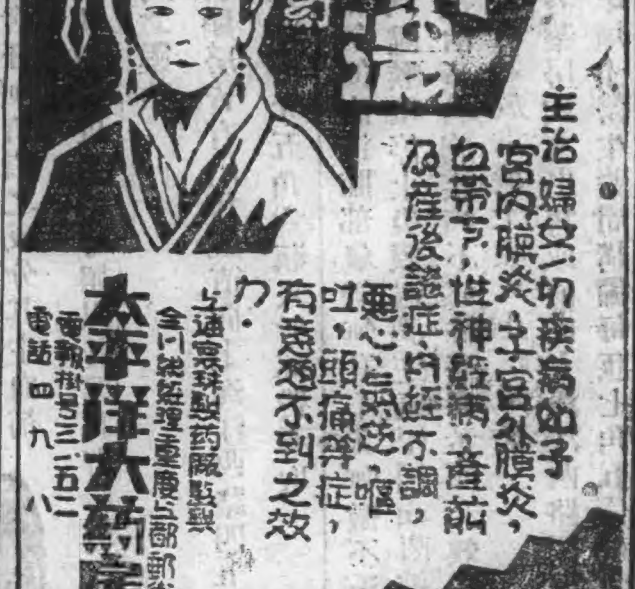 主治婦女一切疾病如子
宮内膜炎,子宮外膜炎,
白帶下,性神經病,產前
及產後諸症,月經不調,
惡心,嘔
吐,頭痛等症,
有意想不到之效
力.
藥廠監製
全川總經理重慶上都郵
太平洋大藥房
電報掛號三二五二
電話四九八